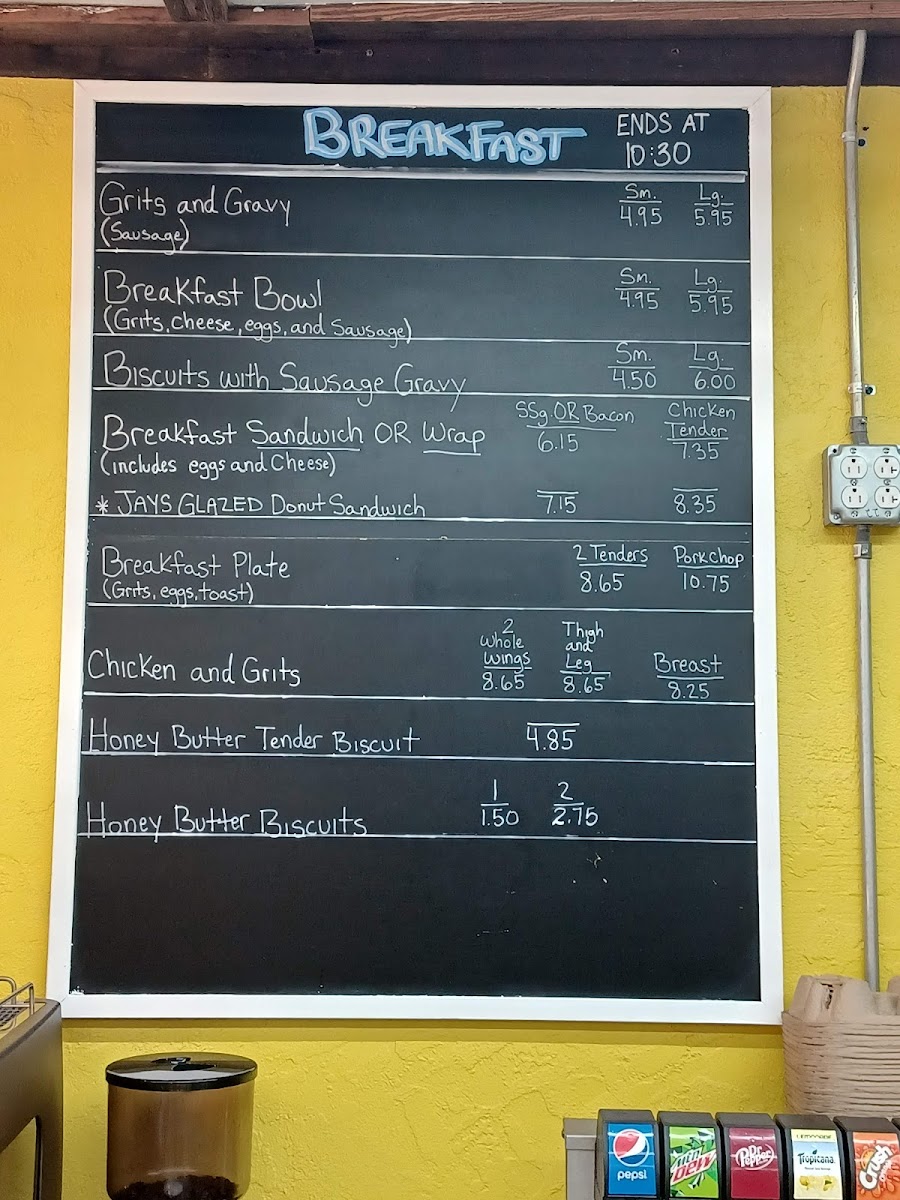 BREAKFAST ENDS AT
10:30
Grits and Gravy Sm. Lg.
(Sausage) 4.95 5.95
Breakfast Bowl Sm. Lg.
(Grits, cheese, eggs, and Sausage) 4.95 5.95
Biscuits with Sausage Gravy Sm. Lg.
4.50 6.00
SSg. OR Bacon Chicken Tender
Breakfast Sandwich OR Wrap 6.15 7.35
(includes eggs and Cheese)
* JAYS GLAZED Donut Sandwich 7.15 8.35
Breakfast Plate 2 Tenders Porkchop
(Grits, eggs, toast) 8.65 10.75
2 Whole Wings Thigh and Leg Breast
Chicken and Grits 8.65 8.65 8.25
Honey Butter Tender Biscuit 4.85
1 2
Honey Butter Biscuits 1.50 2.75
pepsi
Mtn Dew
Dr Pepper
LEMONADE
Tropicana
Crush